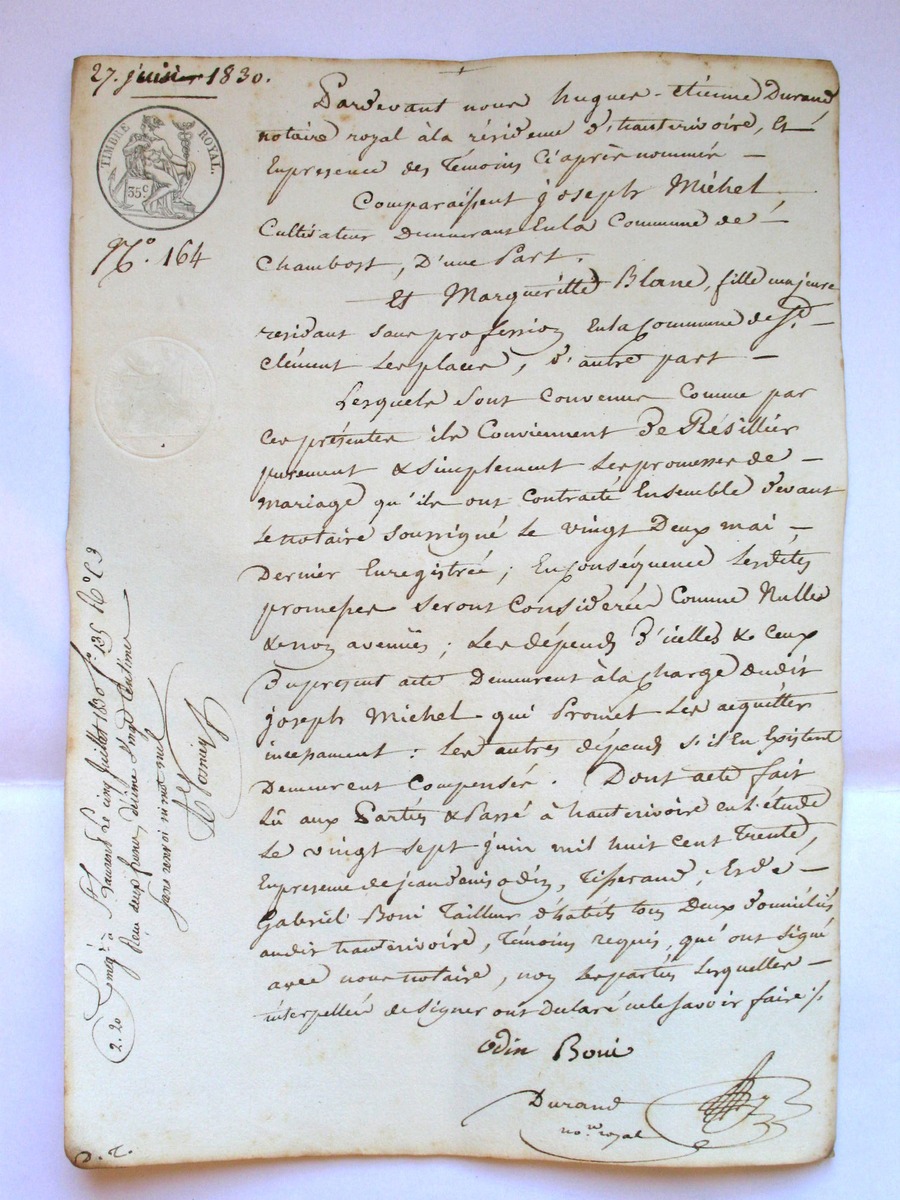 27. juin 1830.
TIMBRE ROYAL.
35c
N.o 164
Pardevant nous hugues-etienne Durand,
notaire royal à la résidence d'hauterivoire, Et
En presence des Témoins Ci après nommés
Comparaissent joseph Michel
Cultivateur Demeurant En la Commune de
Chambost, D'une Part.
Et Marguéritte Blanc, fille majeure
residant sans profession En la Commune de St.
clément les places, d'autre part
Lesquels sont Convenus Comme par
Ces présentes ils Conviennent De Résillier
purement & simplement les promesses de
Mariage qu'ils ont Contracté Ensemble devant
le notaire soussigné le vingt Deux mai
Dernier Enregistrée; En Conséquence lesdites
promesses seront Considerées Comme Nulles
& non avenües; Les dépends d'icelles & Ceux
du present acte Demeurent à la Charge dudit
joseph Michel qui Promet les acquitter
incessament : Les autres dépends s'il En Existent
Demeurent Compensés. Dont acte fait
Lû aux Parties & Passé à hauterivoire en l'étude
Le vingt sept juin mil huit cent Trente,
En presence de jean denis odin, Tisserand, Et de
Gabriel Boni Tailleur d'habits tous Deux domiciliés
audit hauterivoire, Témoins requis, qui ont signé
avec nous notaire, non les parties lesquelles
interpellées de signer ont Déclaré ne le savoir faire ./.
odin Boni
Durand
no.re royal
Enreg.é à St Laurent le cinq juillet 1830 fo. 135 Ro C 3
reçu deux francs, décime Vingt Centimes
sans renvoi ni mot nul
2.20